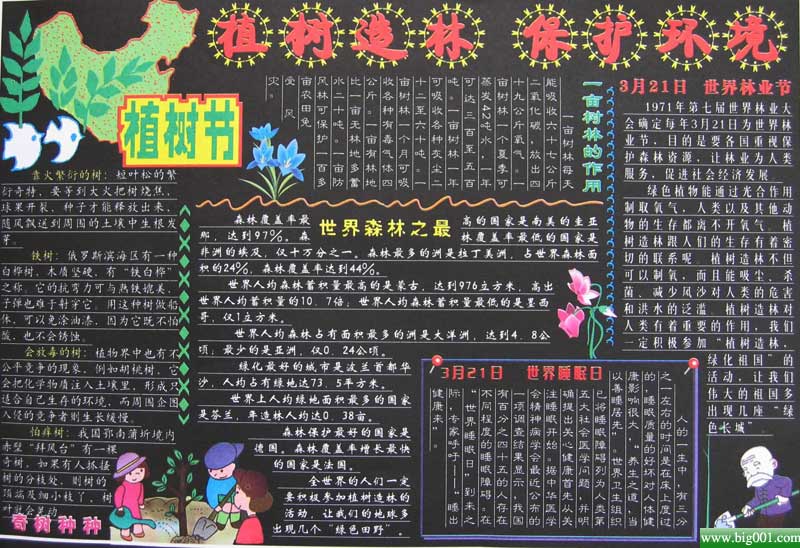 植树造林 保护环境
植树节
靠火繁衍的树：短叶松的繁
衍奇特，要等到大火把树烧焦，
球果开裂，种子才能释放出来，
随风飘送到周围的土壤中生根发
芽。
铁树：俄罗斯滨海区有一种
白桦树，木质坚硬，有“铁白桦”
之称，它的抗弯力可与熟铁媲美，
子弹也难于射穿它，用这种树做船
体，可以免涂油漆，因为它既不怕
酸，也不会锈蚀。
会放毒的树：植物界中也有不
公平竞争的现象，例如胡桃树，它
会把化学物质注入土壤里，形成只
适合自己生存的环境，而周围企图
入侵的竞争者则生长缓慢。
怕痒树：我国鄂南蒲圻境内
赤壁“拜风台”有一棵
奇树，如果有人抓搔
树的分枝处，则树的
顶端及细小枝丫，树
叶就会晃动
奇树种种
一亩树林的作用
一亩树林每天
能吸收六十七公斤
二氧化碳，放出四
十九公斤氧气。一
亩树林一个夏季可
蒸发42吨水，一年
可达三百至五百
吨。一亩树林一年
可吸收各种灰尘二
十二至六十吨。一
亩树林一个月可吸
收各种有毒气体四
公斤。一亩有林地
比一亩无林地多蓄
水二十吨。一亩防
风林可保护一百多
亩农田免
受风
灾。
世界森林之最
森林覆盖率最高的国家是南美的圭亚
那，达到97%。森林覆盖率最低的国家是
非洲的埃及，仅十万分之一。森林最多的洲是拉丁美洲，占世界森林面
积的24%，森林覆盖率达到44%。
世界人均森林蓄积量最高的是蒙古，达到976立方米，高出
世界人均蓄积量的10．7倍；世界人均森林蓄积量最低的是墨西
哥，仅1立方米。
世界人均森林占有面积最多的洲是大洋洲，达到4．8公
顷；最少的是亚洲，仅0．24公顷。
绿化最好的城市是波兰首都华
沙，人均占有绿地达73．5平方米。
世界上人均绿地面积最多的国家
是芬兰，年造林人均达0．38亩。
森林保护最好的国家是
德国。森林覆盖率增长最快
的国家是法国。
全世界的人们一定
要积极参加植树造林的
活动，让我们的地球多
出现几个“绿色田野”。
3月21日 世界林业节
1971年第七届世界林业大
会确定每年3月21日为世界林
业节，目的是要各国重视保
护森林资源，让林业为人类
服务，促进社会经济发展。
绿色植物能通过光合作用
制取氧气，人类以及其他动
物的生存都离不开氧气。植
树造林跟人们的生存有着密
切的联系呢，植树造林不但
可以制氧，而且能吸尘、杀
菌、减少风沙对人类的危害
和洪水的泛滥。植树造林对
人类有着重要的作用，我们
一定积极参加“植树造林，
绿化祖国”的
活动，让我们
伟大的祖国多
出现几座“绿
色长城”
3月21日 世界睡眠日
人的一生中，有三分
之一左右的时间是在床上度过
的，睡眠质量的好坏对人体健
康影响很大，“养生之道，当
以善睡居先”。世界卫生组织
已将睡眠障碍列为人类第
五大社会医学问题，并明
确提出关心健康首先从关
注睡眠开始。据中华医学
会精神病学会最近公布的
一项调查结果显示，我国
有百分之四十五的人存在
不同程度的睡眠障碍。在
“世界睡眠日”到来之
际，专家呼吁——“睡出
健康来”。
www.big001.com